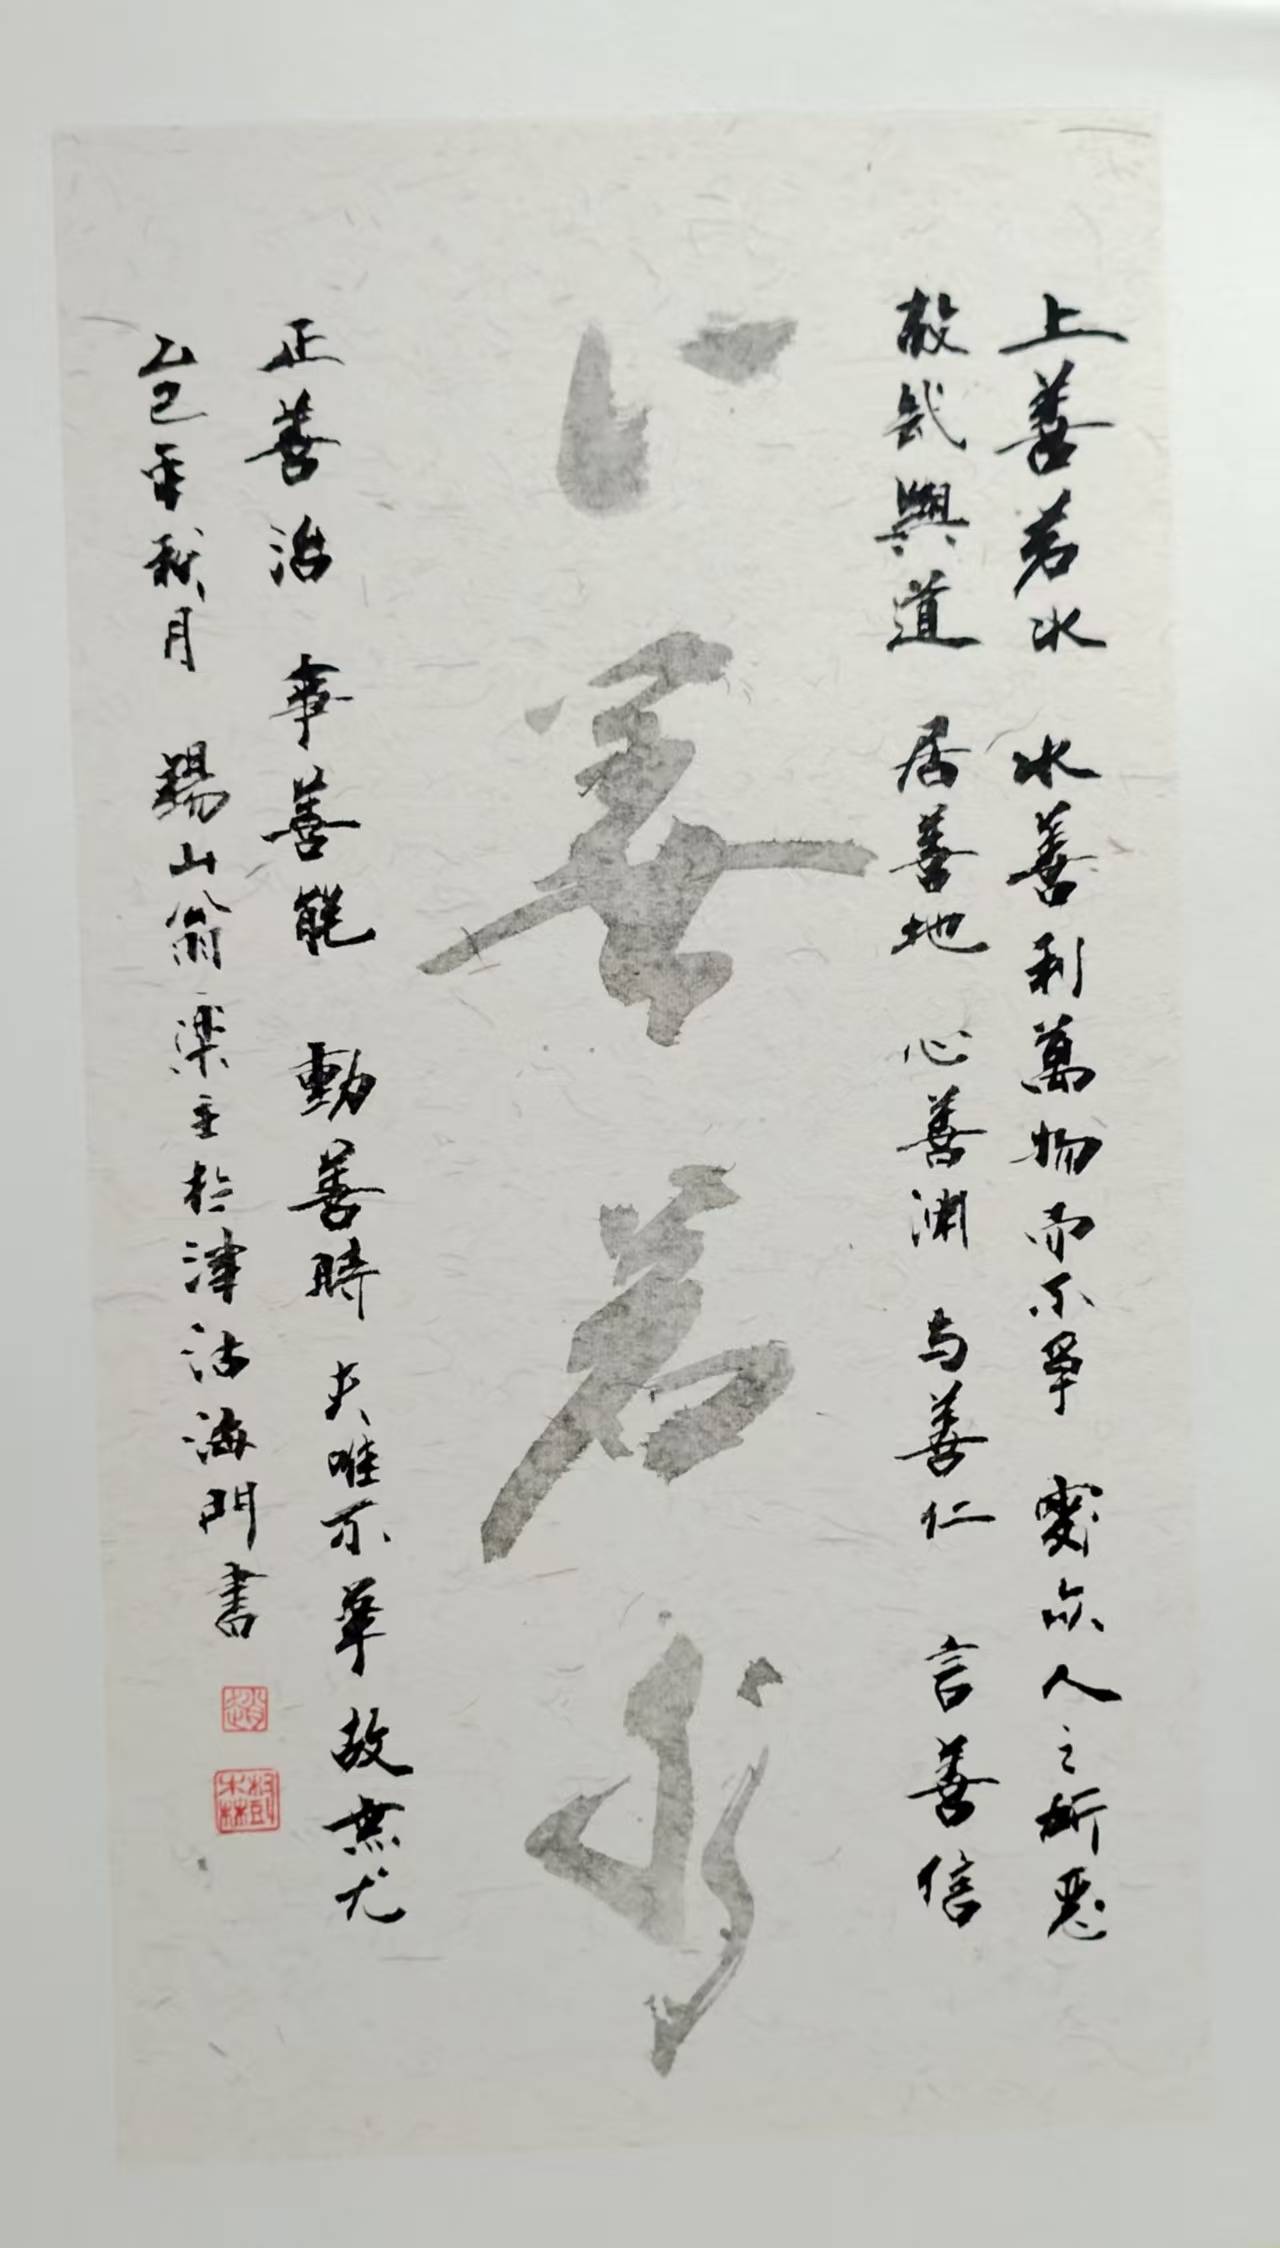 上善若水 水善利萬物而不爭 處衆人之所惡
故幾與道 居善地 心善渊 与善仁 言善信
上善若水
正善治 事善能 動善時 夫唯不爭故無尤
乙巳年秋月 錫山翁樂主於津沽海門書
趙
樹林